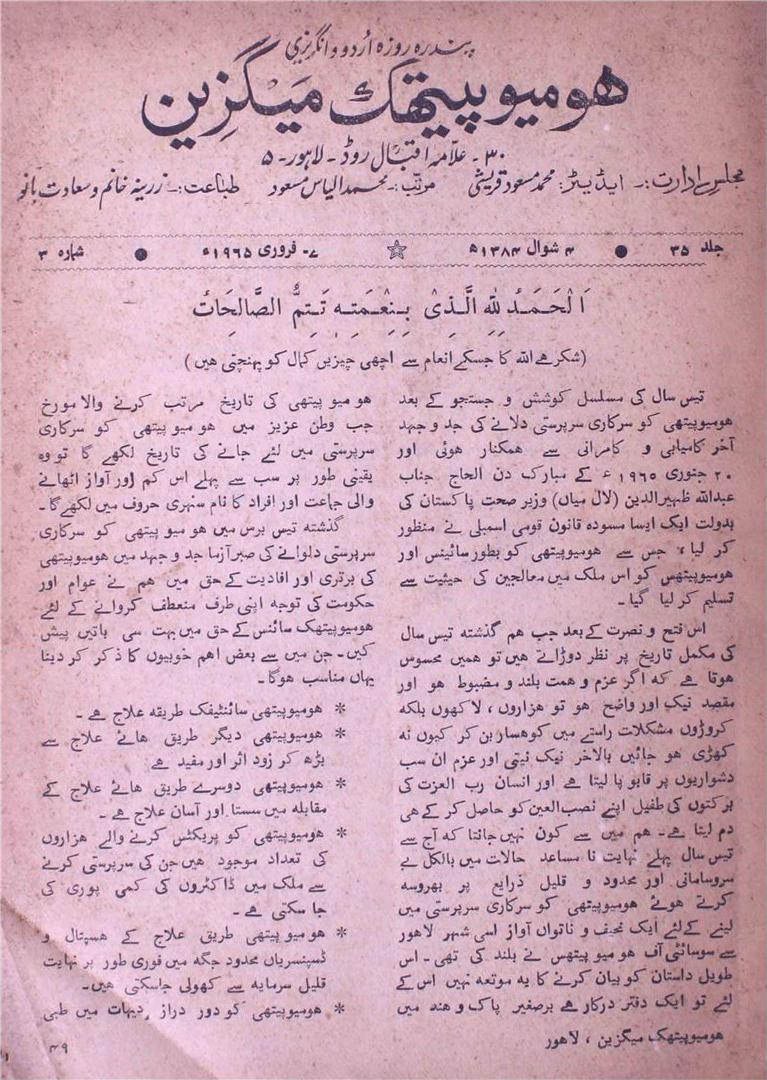 پندرہ روزہ اُردو و انگریزی
ھومیوپیتھک میگزین
۳۰- علامہ اقبال روڈ - لاہور - ۵
مجلس ادارت :- ایڈیٹر : محمد مسعود قریشی مرتب :- محمد الیاس مسعود طباعت :- زرینہ خانم و سعادت بانو
جلد ۳۵ ● ۴ شوال ۱۳۸۴ھ ☆ ۷- فروری ۱۹۶۵ء ● شمارہ ۳
اَلْحَمَدُ لِلّٰہِ الَّذِیْ بِنِعْمَتِہٖ تَتِمُّ الصَّالِحَاتُ
(شکر ہے اللہ کا جسکے انعام سے اچھی چیزیں کمال کو پہنچتی ہیں)
تیس سال کی مسلسل کوشش و جستجو کے بعد
ھومیوپیتھی کو سرکاری سرپرستی دلانے کی جد و جہد
آخر کامیابی و کامرانی سے ھمکنار ھوئی اور
۲۰ جنوری ۱۹۶۵ء کے مبارک دن الحاج جناب
عبداللہ ظہیرالدین (لال میاں) وزیر صحت پاکستان کی
بدولت ایک ایسا مسودہ قانون قومی اسمبلی نے منظور
کر لیا، جس سے ھومیوپیتھی کو بطور سائینس اور
ھومیوپیتھس کو اس ملک میں معالجین کی حیثیت سے
تسلیم کر لیا گیا ۔
اس فتح و نصرت کے بعد جب ھم گذشتہ تیس سال
کی مکمل تاریخ پر نظر دوڑاتے ھیں تو ھمیں محسوس
ھوتا ہے کہ اگر عزم و ھمت بلند و مضبوط ھو اور
مقصد نیک اور واضح ھو تو ھزاروں ، لاکھوں بلکہ
کروڑوں مشکلات راستے میں کوھسار بن کر کیوں نہ
کھڑی ھو جائیں بالآخر نیک نیتی اور عزم ان سب
دشواریوں پر قابو پا لیتا ہے اور انسان رب العزت کی
برکتوں کی طفیل اپنے نصب العین کو حاصل کر کے ھی
دم لیتا ہے۔ ھم میں سے کون نہیں جانتا کہ آج سے
تیس سال پہلے نہایت نا مساعد حالات میں بالکل بے
سروسامانی اور محدود و قلیل ذرایع پر بھروسہ
کرتے ھوئے ھومیوپیتھی کو سرکاری سرپرستی میں
لینے کے لئے ایک نحیف و ناتواں آواز اسی شہر لاھور
سے سوسائٹی آف ھومیوپیتھس نے بلند کی تھی۔ اس
طویل داستان کو بیان کرنے کا یہ موقعہ نہیں اس کے
لئے تو ایک دفتر درکار ہے برصغیر پاک و ھند میں
ھومیوپیتھی کی تاریخ مرتب کرنے والا مورخ
جب وطن عزیز میں ھومیوپیتھی کو سرکاری
سرپرستی میں لئے جانے کی تاریخ لکھے گا تو وہ
یقینی طور پر سب سے پہلے اس کم زور آواز اٹھانے
والی جماعت اور افراد کا نام سنہری حروف میں لکھے گا۔
گذشتہ تیس برس میں ھومیوپیتھی کو سرکاری
سرپرستی دلوانے کی صبر آزما جد و جہد میں ھومیوپیتھی
کی برتری اور افادیت کے حق میں ھم نے عوام اور
حکومت کی توجہ اپنی طرف منعطف کروانے کے لئے
ھومیوپیتھک سائنس کے حق میں بہت سی باتیں پیش
کیں۔ جن میں سے بعض اھم خوبیوں کا ذکر کر دینا
یہاں مناسب ھوگا۔
* ھومیوپیتھی سائنٹیفک طریقہ علاج ہے ۔
* ھومیوپیتھی دیگر طریق ھائے علاج سے
بڑھ کر زود اثر اور مفید ہے
* ھومیوپیتھی دوسرے طریق ھائے علاج کے
مقابلہ میں سستا اور آسان علاج ہے ۔
* ھومیوپیتھی کو پریکٹس کرنے والے ھزاروں
کی تعداد موجود ھیں جن کی سرپرستی کرنے
سے ملک میں ڈاکٹروں کی کمی پوری کی
جا سکتی ہے ۔
* ھومیوپیتھی طریق علاج کے ھسپتال و
ڈسپنسریاں محدود جگہ میں فوری طور پر نہایت
قلیل سرمایہ سے کھولی جاسکتی ھیں۔
* ھومیوپیتھی کو دور دراز دیہات میں طبی
ھومیوپیتھک میگزین ، لاھور
۴۹